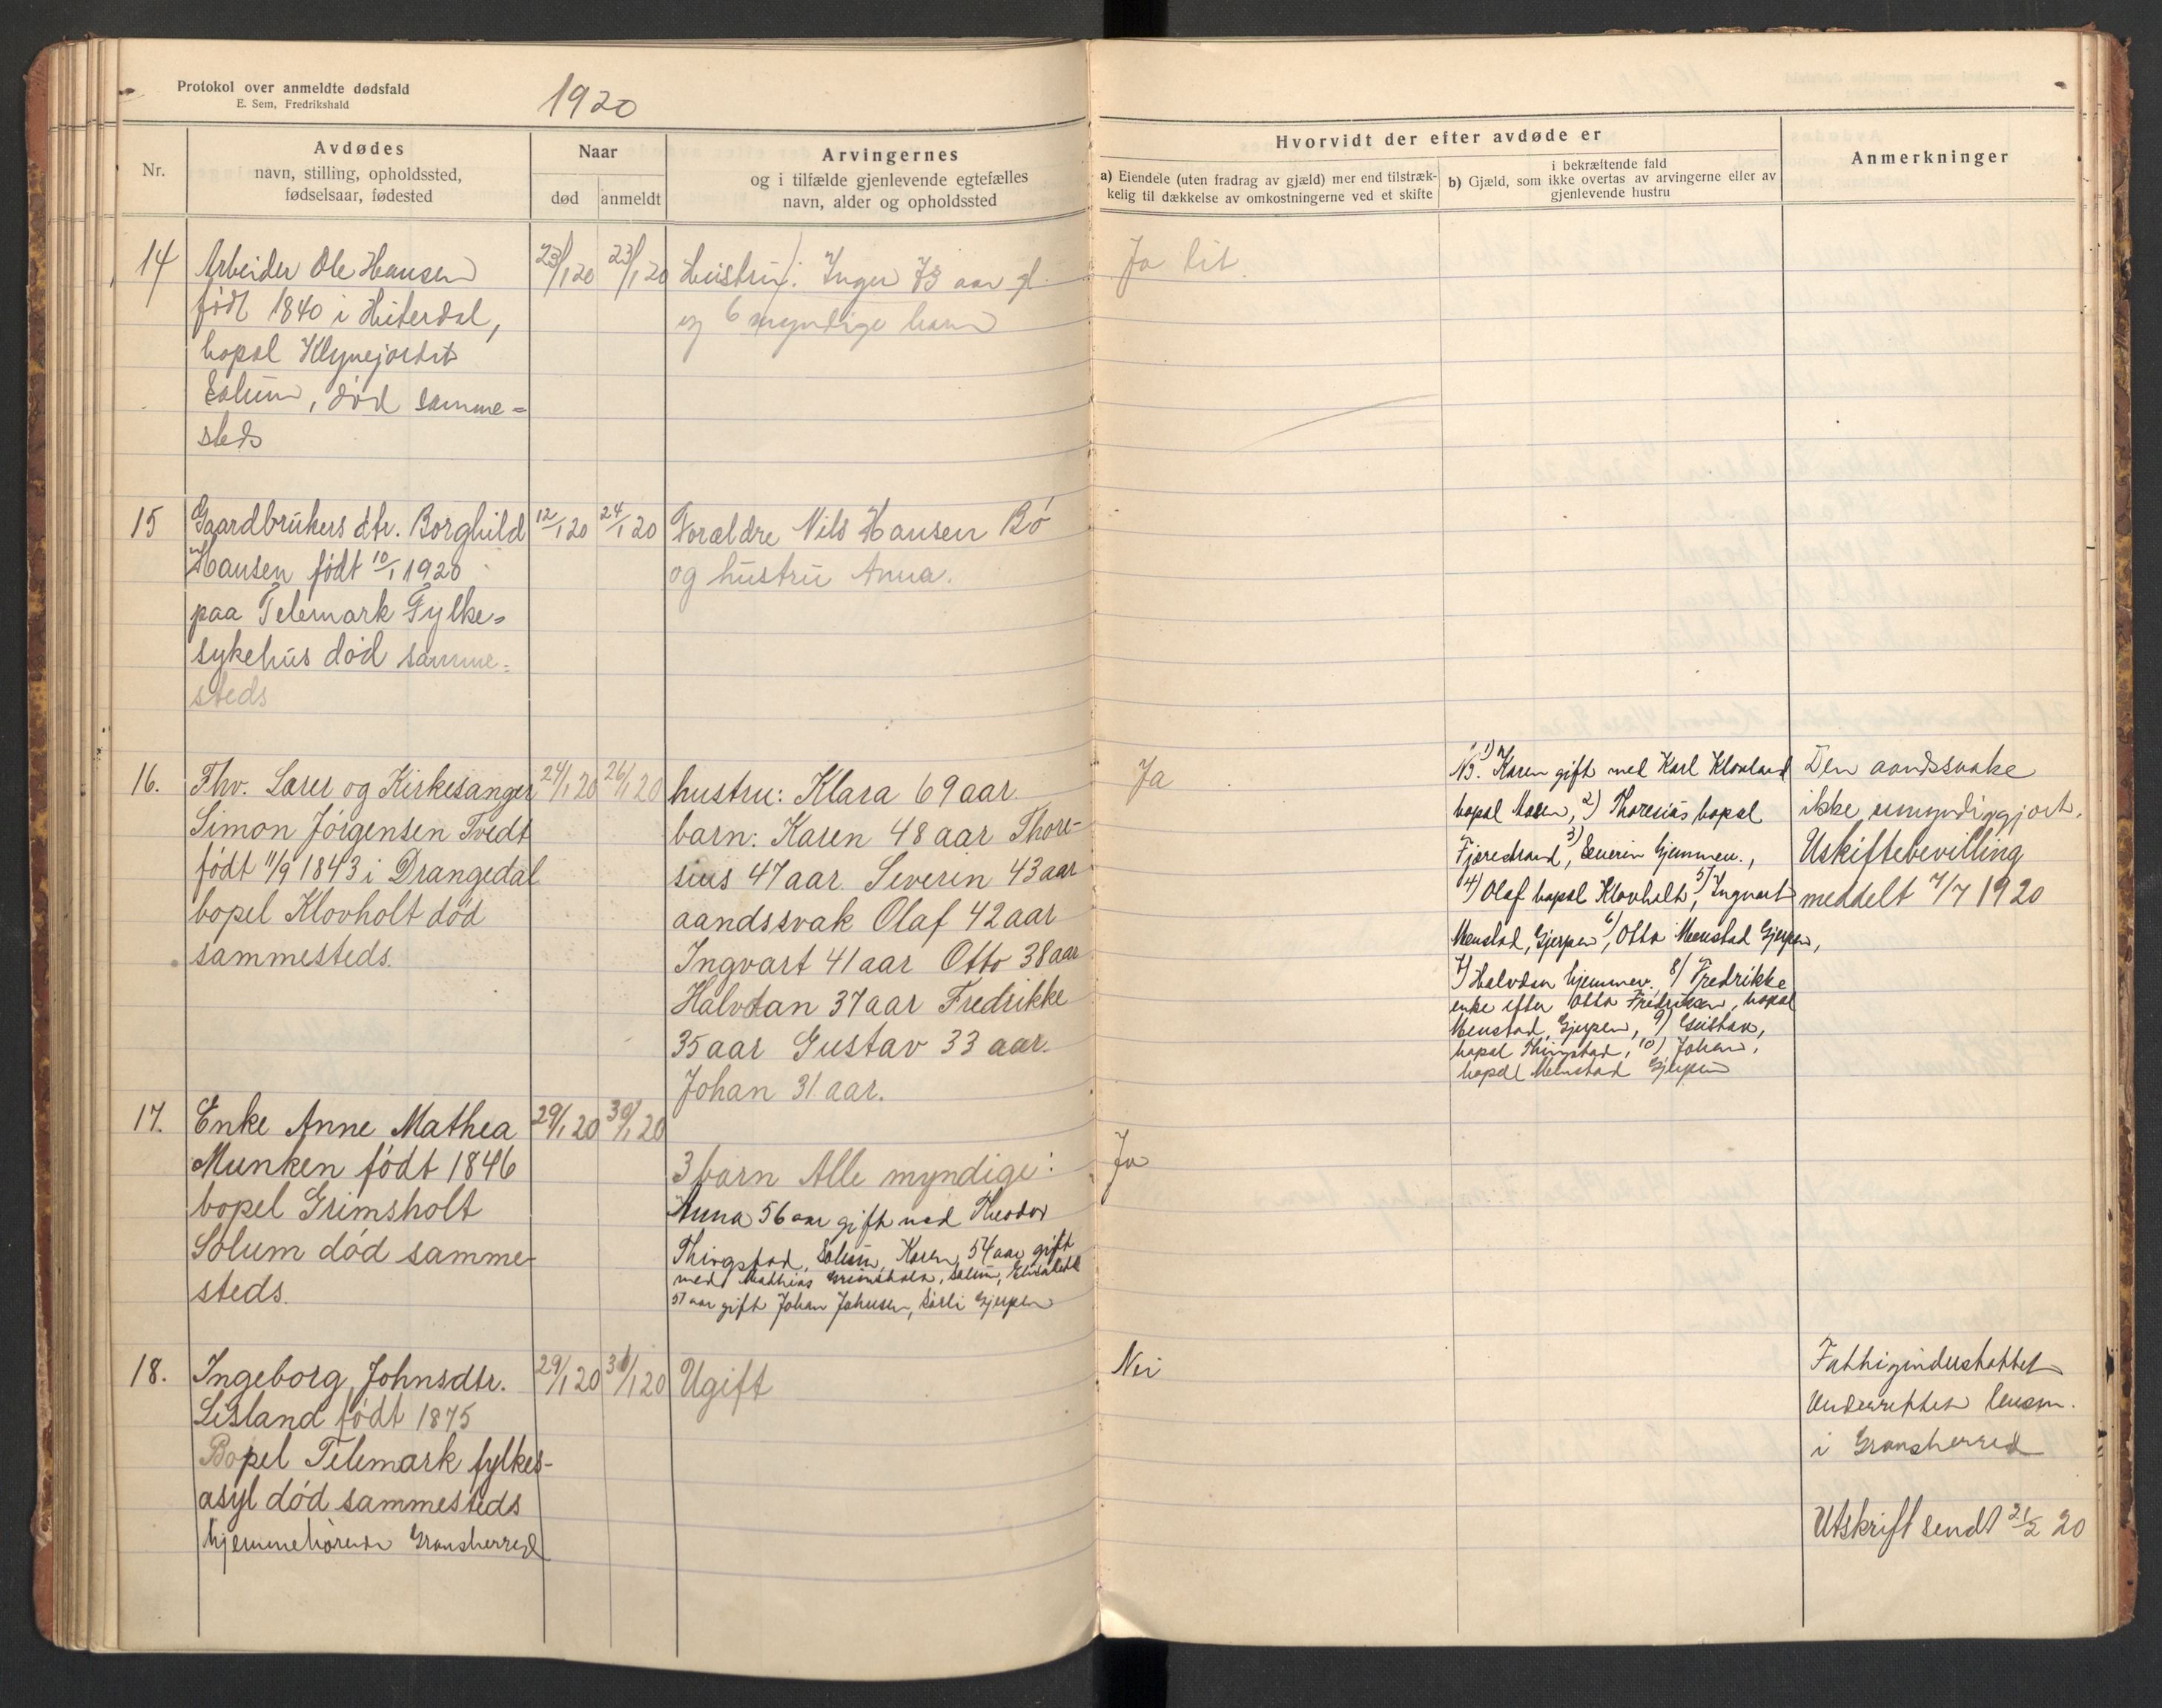 Protokol over anmeldte dødsfald
E. Sem, Fredrikshald
1920
Nr.
Avdødes
navn, stilling, opholdssted,
fødselsaar, fødested
Naar
død
anmeldt
Arvingernes
og i tilfælde gjenlevende egtefælles
navn, alder og opholdssted
Hvorvidt der efter avdøde er
a) Eiendele (uten fradrag av gjæld) mer end tilstræk-
kelig til dækkelse av omkostningerne ved et skifte
i bekræftende fald
b) Gjæld, som ikke overtas av arvingerne eller av
gjenlevende hustru
Anmerkninger
14
Arbeider Ole Hansen
født 1840 i Hiterdal,
bopel
Solum, død samme-
steds
23/1 20
23/1 20
Hustru: Inger 73 aar gl.
og 6 myndige barn
Ja lit.
15
Gaardbrukers dtr. Borghild
Hansen født 10/1 1920
paa Telemark Fylke-
sykehus død samme-
steds
12/1 20
24/1 20
Forældre Nils Hansen Bö
og hustru Anna.
16.
Fhv. Lærer og Kirkesanger
Simon Jörgensen Tvedt
født 11/9 1843 i Drangedal
bopel Klovholt død
sammesteds.
24/1 20
26/1 20
hustru: Klara 69 aar.
barn: Karen 48 aar Thore-
sius 47 aar. Severin 43 aar
aandssvak Olaf 42 aar
Ingvart 41 aar Otto 38 aar
Halvdan 37 aar Fredrikke
35 aar Gustav 33 aar.
Johan 31. aar.
Ja
1) Karen gift med Karl
bopel 2) Thoresius bopel
3) Severin hjemmev.,
4) Olaf bopel Klovholt, 5) Ingvart
Menstad, Gjerpen, 6) Otto Menstad Gjerpen,
7) Halvdan hjemmev., 8) Fredrikke
enke efter Otto Fredriksen, bopel
Menstad, Gjerpen, 9) Gustav,
bopel 10) Johan,
bopel Menstad Gjerpen
Den aandssvake
ikke umyndiggjort.
Uskiftebevilling
meddelt 7/7 1920
17.
Enke Anne Mathea
Munken født 1846
bopel Grimsholt
Solum død samme-
steds.
29/1 20
30/1 20
3 barn Alle myndige:
Anna 56 aar gift med Theodor
Solum, Karen 54 aar gift
med Mathias Solum, Elisabeth
51 aar gift Johan Johnsen, Gjerpen
Ja
18.
Ingeborg Johnsdtr.
Lisland født 1875
Bopel Telemark fylkes-
asyl død sammesteds
hjemmehörende Gransherred
29/1 20
31/1 20
Ugift
Nei
Fattigunderstøttet
Underrettet lensm.
i Gransherred
Utskrift sendt 21/2 20